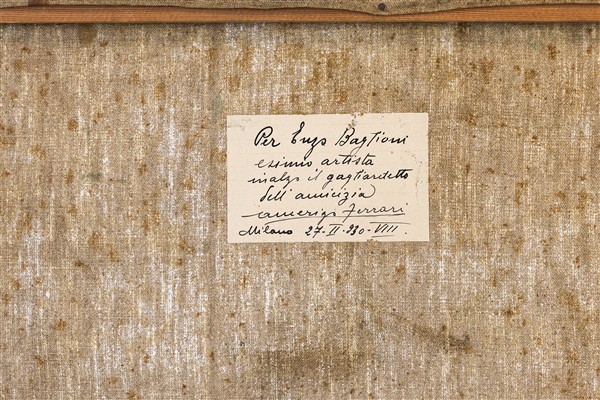 Per Enzo Baglioni
esimio artista
inalzo il gagliardetto
dell'amicizia
Camerigo Ferrari
Milano 27-II-930-VIII.